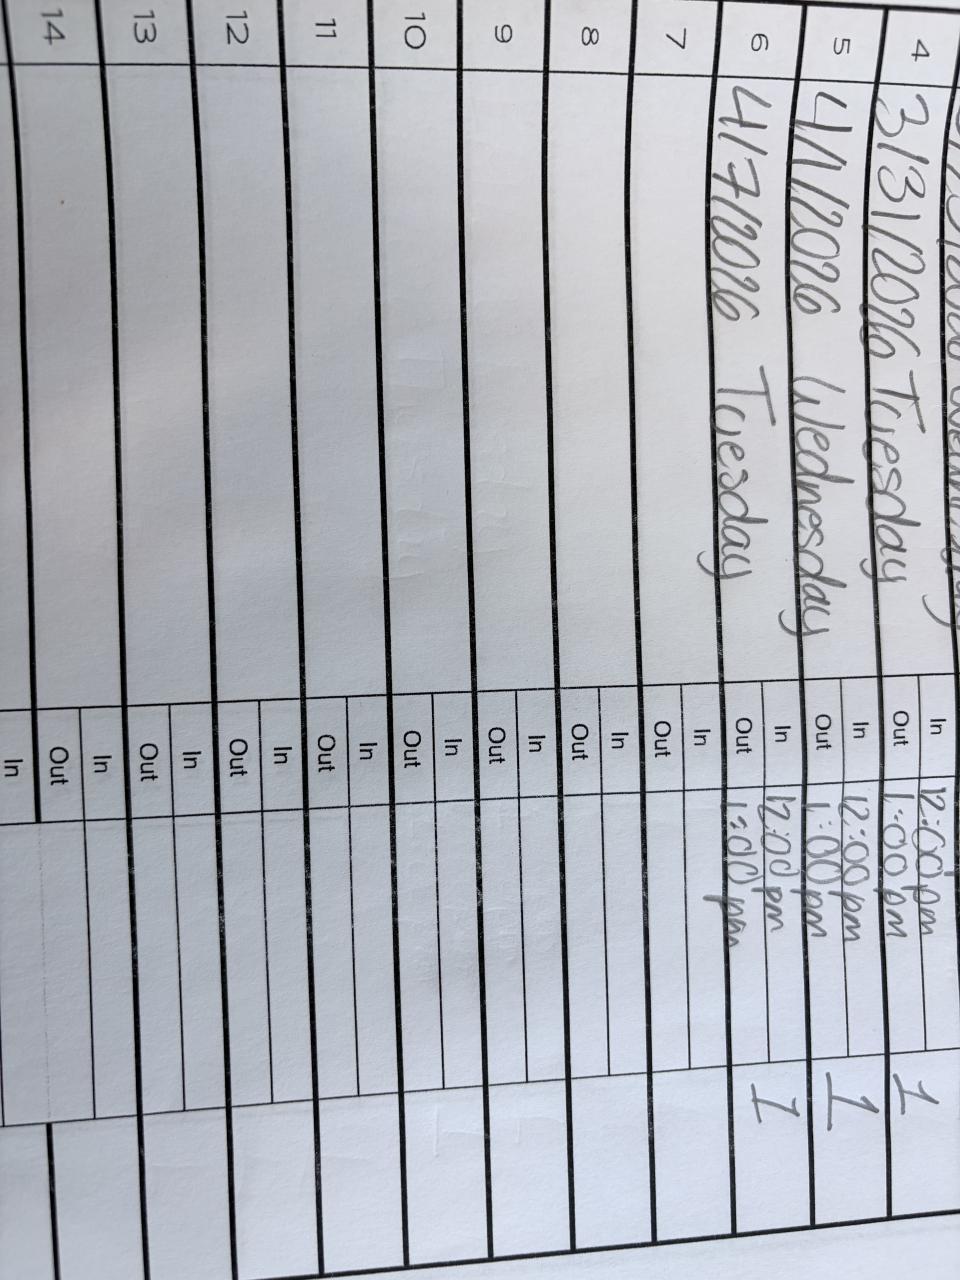 4 3/31/2026 Tuesday In 12:00pm 1
Out 1:00pm
5 4/1/2026 Wednesday In 12:00pm 1
Out 1:00pm
6 4/7/2026 Tuesday In 12:00pm 1
Out 1:00pm
7 In
Out
8 In
Out
9 In
Out
10 In
Out
11 In
Out
12 In
Out
13 In
Out
14 In
Out
In